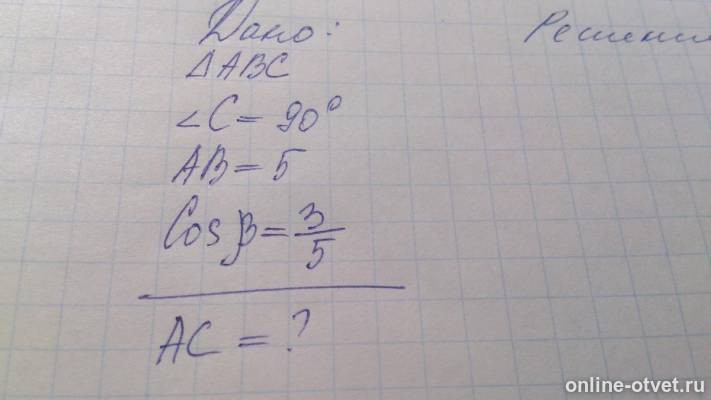 Дано:
Решение
△ABC
∠C = 90°
AB = 5
Cos β = 3/5
AC = ?
online-otvet.ru